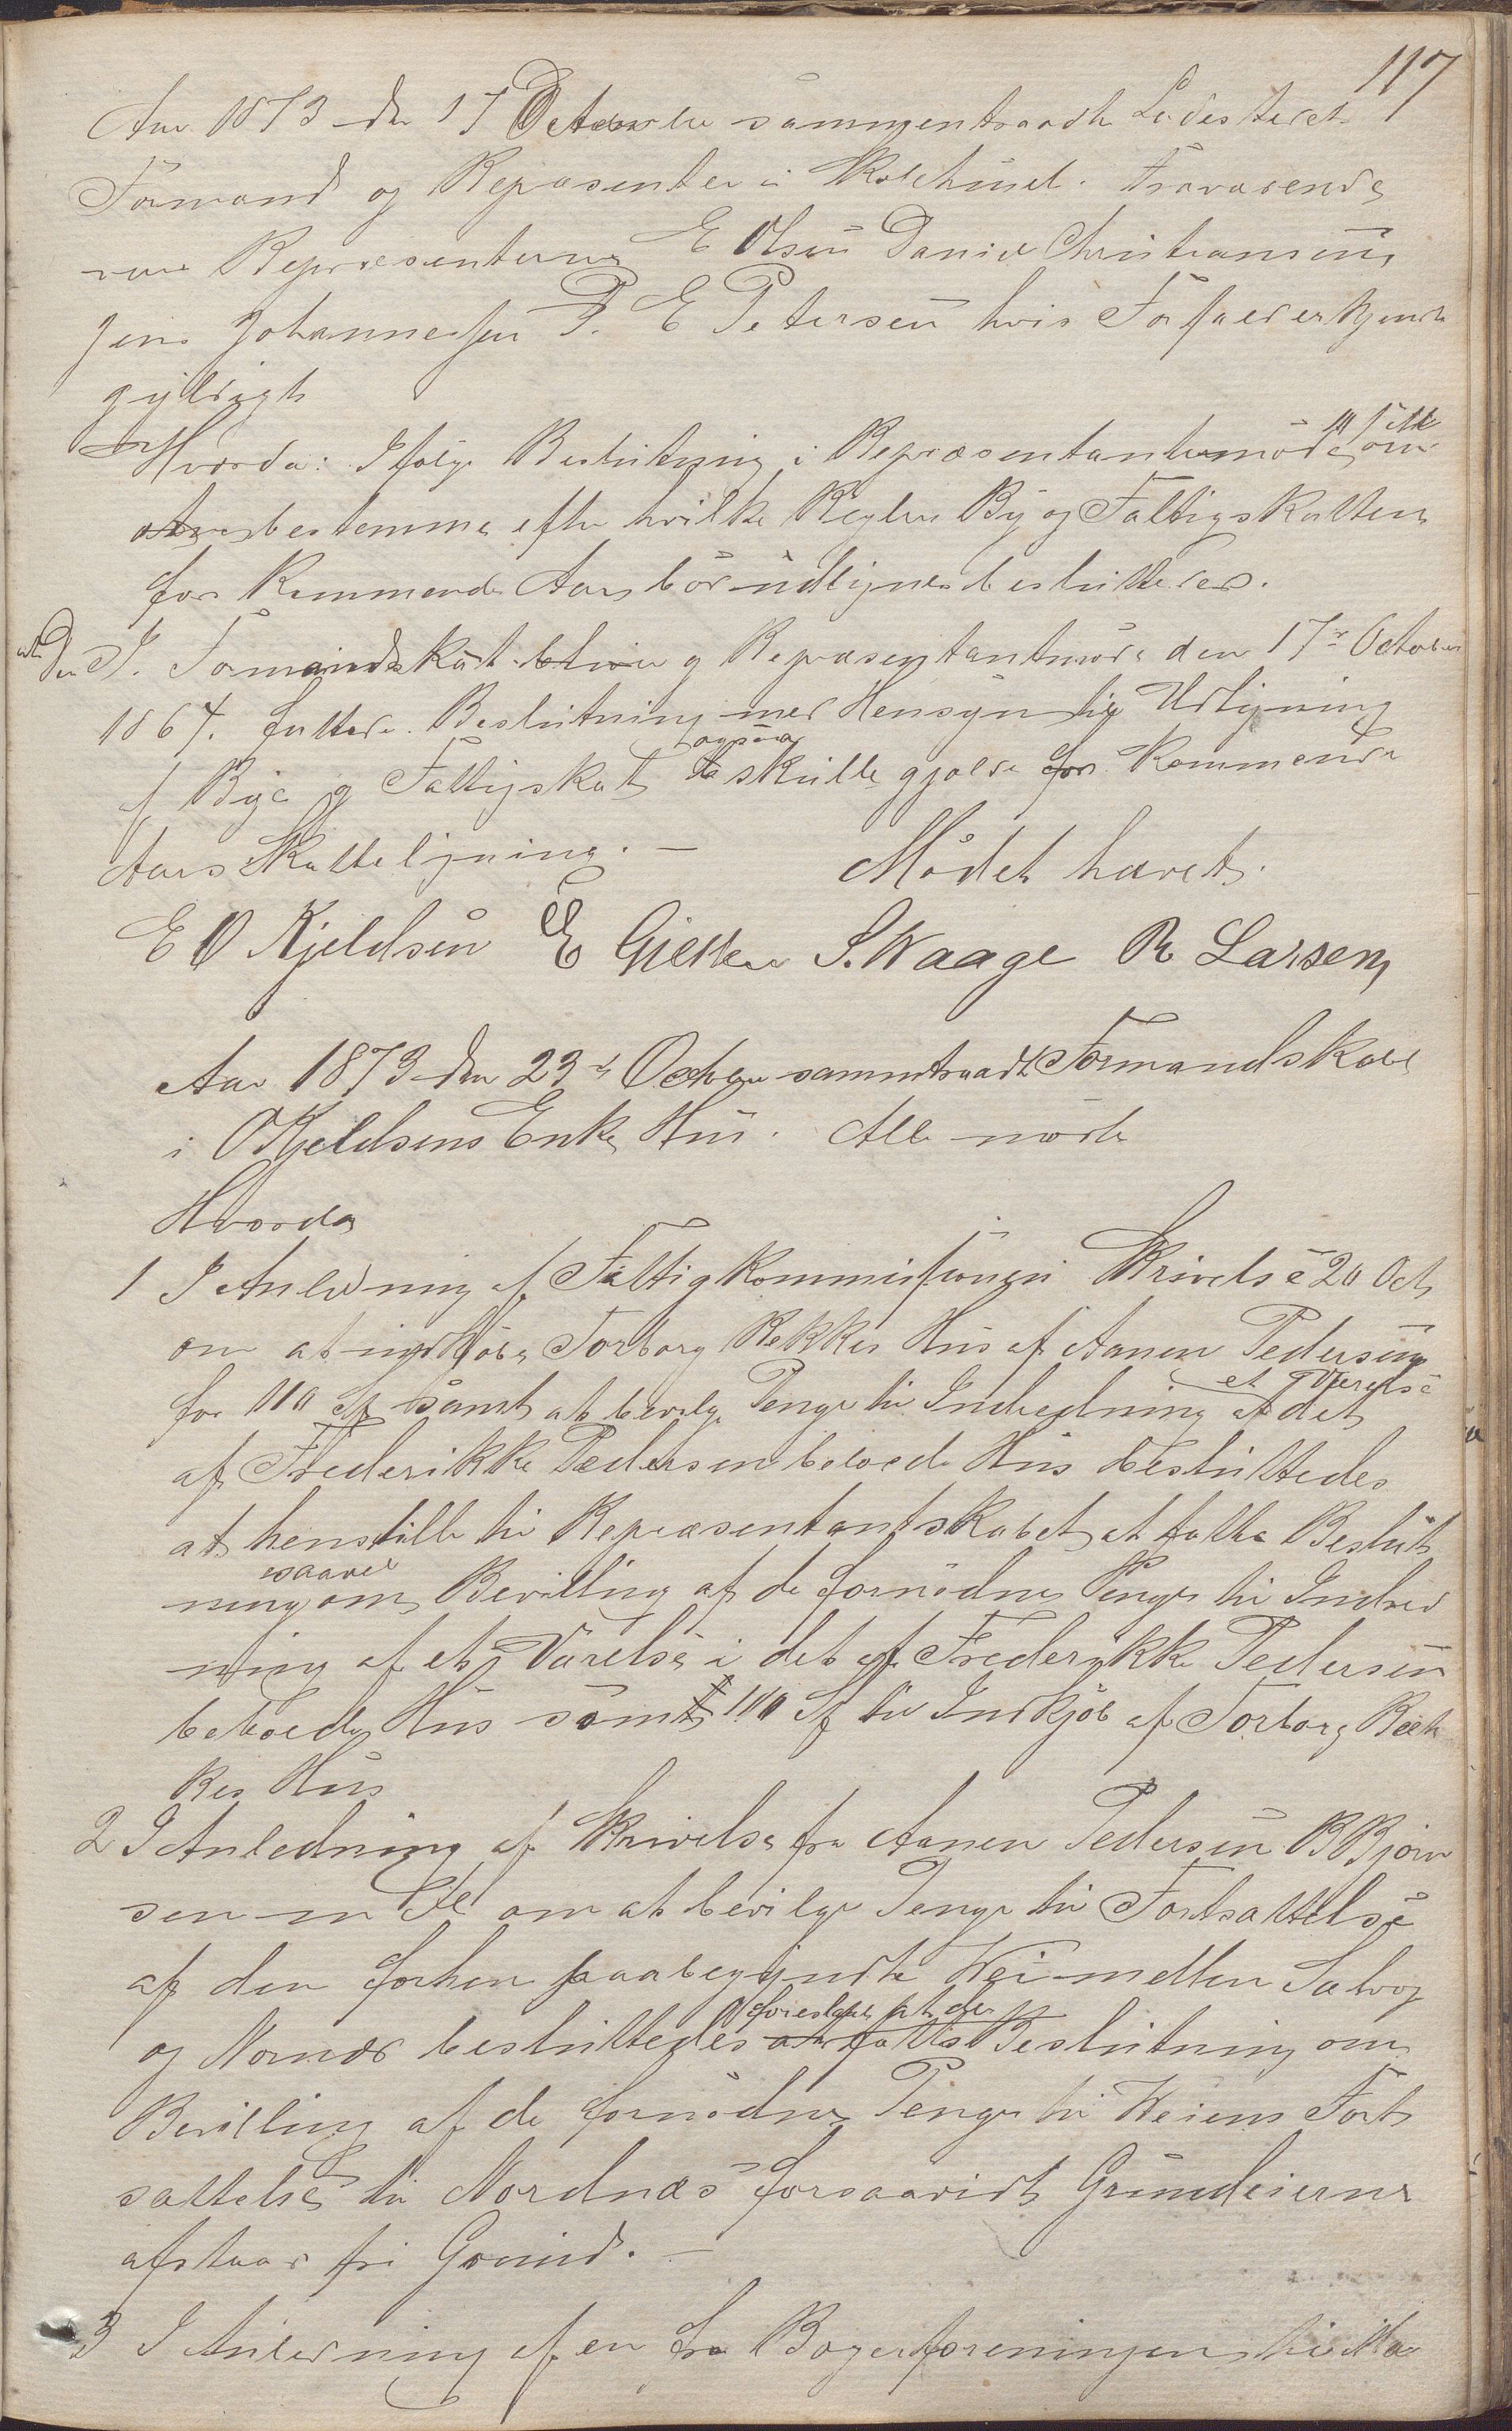 117
Aar 1873 den 17 October sammentraadte Ladestedets
Formænd og Repræsenter i Skolehuset. Fraværende
var Repræsenterne E Olsen Daniel Christiansen
Jens Johannessen P. E Petersen hvis Forfald erkjendt
gyldigt
Hvorda: Ifølge Beslutning i Repræsentantermøde om
at bestemme efter hvilke Regler By og Fattigskatten
for Kommende Aar bør udlignes besluttedes.
Den I. Formandskabt og Repræsentantmøde den 17de October
1867. fattede Beslutning med Hensyn til Udligning
af Bye og Fattigskat ogsaa skulle gjælde for Kommende
Aars Skatteligning. – Mødet hævet.
E O Kjeldsen E Gjelsten S. Waage R Larsen
Aar 1873 den 23de October sammentraadte Formandskabet
i O Kjeldsens Enkes Hus. Alle mødte
Hvorda
1 I Anledning af Fattigkommissionens Skrivelse 20 Oct
om at indkjøbe Torborg Rekkes Hus af Aanen Pedersen
for 110 Sp samt at bevilge Penge til Indredning af et Værelse det
af Frederikke Pedersen beboede Hus besluttedes
at henstille til Repræsentantskabet at fatte Beslut
ning om saavel Bevilling af de fornødne Penge til Indred
ning af et Værelse i det af Frederikke Pedersen
beboede Hus samt 110 Sp til Indkjøb af Torborg Rek
kes Hus
2 I Anledning af Skrivelse fra Aanen Pedersen B Bjørn
sen m Fl om at bevilge Penge til Fortsættelse
af den forhen paabegyndte Vei mellem Salvog
og Nornæs besluttedes foreslaaet at der fattes Beslutning om
Bevilling af de fornødne Penge til Veiens Fort
sættelse til Nordnæs forsaavidt Grundeierne
afstaar fri Grund. –
3 I Anledning af en fra Borgerforeningen til Ma